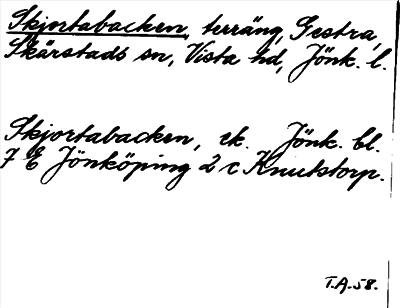 Skjortabacken, terräng, Gestra,
Skärstads sn, Vista hd, Jönk. l.
Skjortabacken, ek. Jönk. bl.
7 E Jönköping 2 c Knutstorp.
T.A.-58.